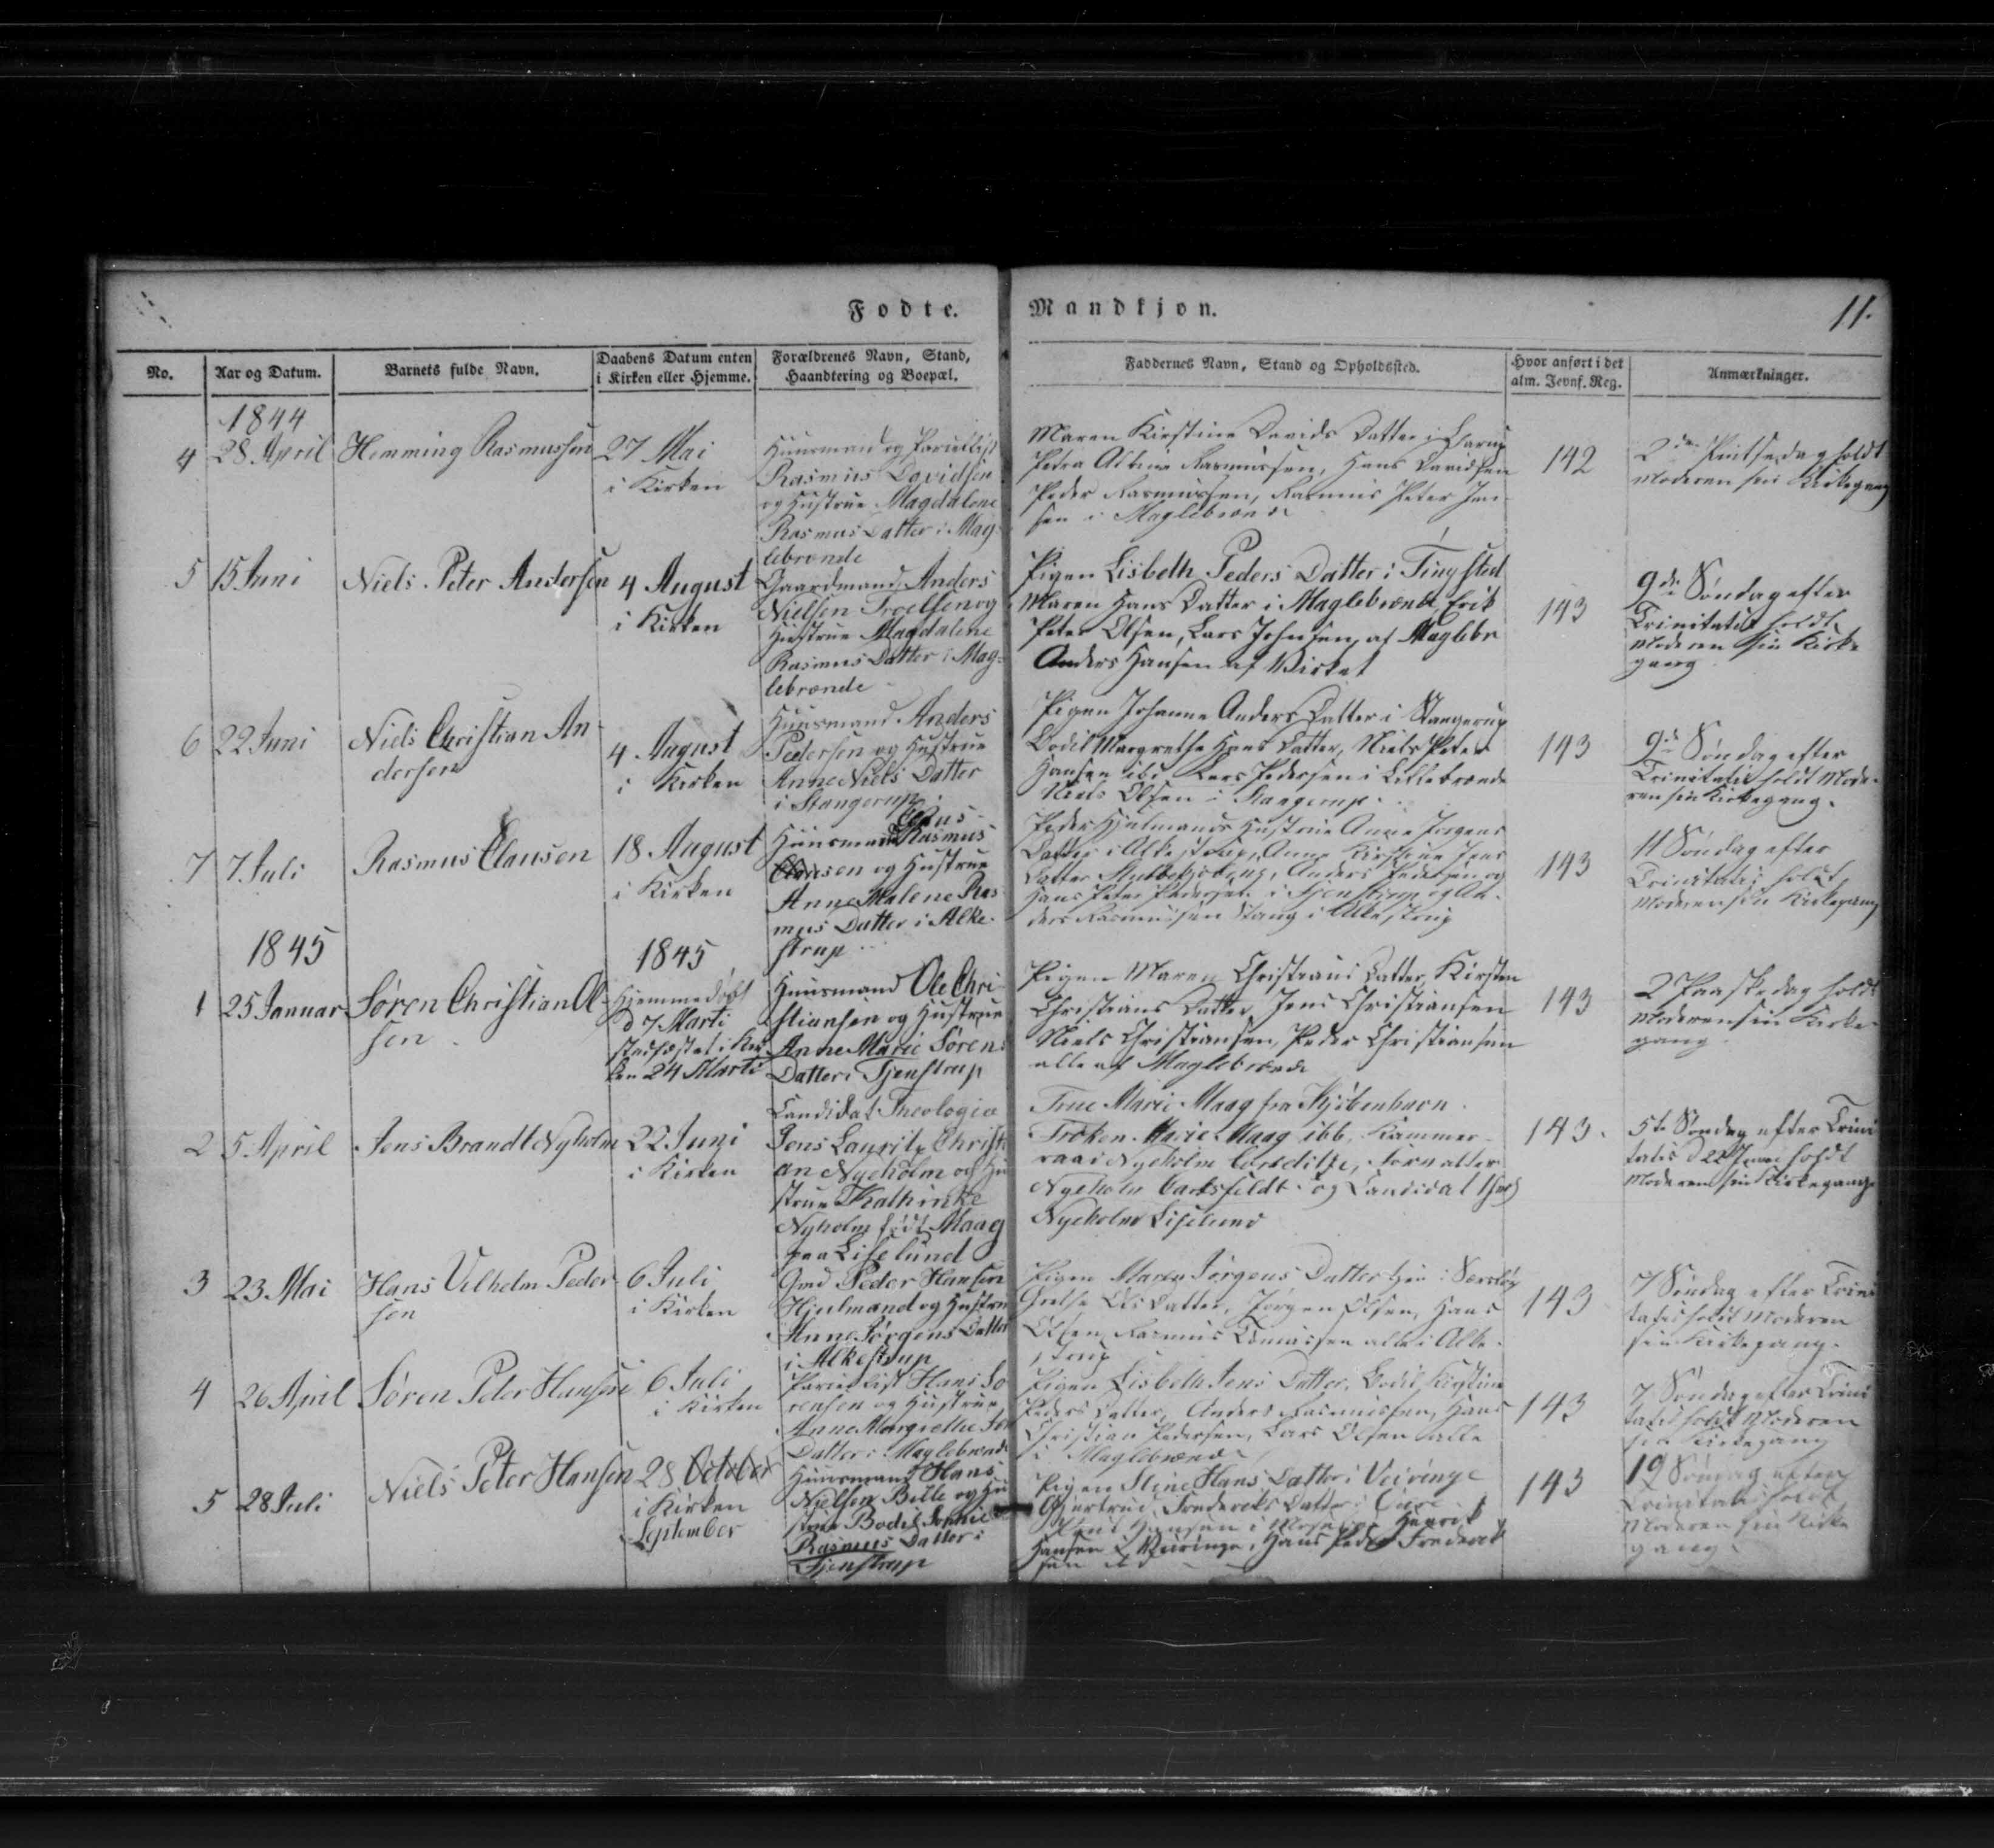 Fødte.
Mandkjøn.
11.
No.
Aar og Datum.
Barnets fulde Navn.
Daabens Datum enten
i Kirken eller Hjemme.
Forældrenes Navn, Stand,
Haandtering og Boepæl.
Faddernes Navn, Stand og Opholdssted.
Hvor anført i det
alm. Jevnf. Reg.
Anmærkninger.
1844
4
28 April
Hemming Rasmussen
27 Mai
i Kirken
Huusmand og
Rasmus Davidsen
og Hustrue Magdalene
Rasmus Datter i Mag-
lebrænde
Maren Kirstine Davids Datter i
Petra Rasmussen, Hans Davidsen
Peder Rasmussen, Rasmus Peter Jen-
sen i Maglebrænde
142
2den Pintsedag holdt
Moderen sin Kirkegang
5
15 Juni
Niels Peter Andersen
4 August
i Kirken
Gaardmand Anders
Nielsen Troelsen og
Hustrue Magdalene
Rasmus Datter i Mag-
lebrænde
Pigen Lisbeth Peders Datter i Tingsted
Maren Hans Datter i Maglebrænde, Erik
Peter Olsen, Lars Johnsen, af Maglebr
Anders Hansen af Virket
143
9de Søndag efter
Trinitatis holdt
Moderen sin Kirke
gang
6
22 Juni
Niels Christian An-
dersen
4 August
i Kirken
Huusmand Anders
Pedersen og Hustrue
Anne Niels Datter
i Stangerup
Pigen Johanne Anders Datter i Stangerup
Bodil Margrethe Hans Datter, Niels Peter
Hansen ibd Lars Pedersen i Lillebrænde
Niels Olsen i Stangerup.
143
9de Søndag efter
Trinitatis holdt Mode-
ren sin Kirkegang.
7
7 Juli
Rasmus Clausen
18 August
i Kirken
Claus
Huusmand Rasmus
Clausen og Hustrue
Anne Malene Ras
mus Datter i Alke-
strup
Peder Hjulmands Hustrue Anne Jørgens
Datter i Alkestrup, Anne Kirstine Jens
Datter Anders Pedersen og
Hans Peter Pedersen i Tjenstrup og An-
ders Rasmussen Stang i Alkestrup
143
11 Søndag efter
Trinitatis holdt
Moderen sin Kirkegang
1845
1845
1
25 Januar
Søren Christian Ol-
sen
Hjemmedøbt
d 7 Marti
stadfæstet i Kir
ken 24 Marti
Huusmand Ole Chri-
stiansen og Hustrue
Anne Marie Sørens
Datter i Tjenstrup
Pigen Maren Christians Datter, Kirsten
Christians Datter, Jens Christiansen
Niels Christiansen, Peder Christiansen
alle af Maglebrænde
143
2 Paaskedag holdt
Moderen sin Kirke-
gang
2
5 April
Jens Brandt Nyholm
22 Juni
i Kirken
Candidat Theologiæ
Jens Lauritz Christi
an Nyeholm og Hu
strue Kathinke
Nyholm født Maag
paa Liselund
Frue Marie Maag fra Kjöbenhavn
Frøken Marie Maag ibd, Kammer-
raad Nyeholm
Nyeholm og Candidat
Nyeholm Liselund
143.
5te Søndag efter Trini
tatis d 22 Juni holdt
Moderen sin Kirkegang
3
23 Mai
Hans Vilhelm Peder-
sen
6 Juli
i Kirken
Gmd Peder Hansen
Hjulmand og Hustrue
Anne Jørgens Datter
i Alkestrup
Pigen Maren Jørgens Datter
Grethe Ols Datter, Jørgen Olsen, Hans
Olsen, Rasmus alle i Alke-
strup
143
7 Søndag efter Trini
tatis holdt Moderen
sin Kirkegang.
4
26 April
Søren Peter Hansen
6 Juli
i Kirken
Hans Sø
rensen og Hustrue
Anne Margrethe
Datter i Maglebrænde
Pigen Lisbeth Jens Datter, Bodil Kirstine
Peders Datter, Anders Rasmussen, Hans
Christian Pedersen, Lars Olsen alle
i Maglebrænde
143
7 Søndag efter Trini
tatis holdt Moderen
sin Kirkegang
5
28 Juli
Niels Peter Hansen
28 October
i Kirken
September
Huusmand Hans
Nielsen Bille og Hu
strue Bodil
Rasmus Datter i
Tjenstrup
Pigen Stine Hans Datter i Veiringe
Giertrud Frederiks Datter i
Knud Hansen i Henrik
Hansen Veiringe, Hans Peder Frederik
sen ibd
143
19 Søndag efter
Trinitatis holdt
Moderen sin Kirke
gang